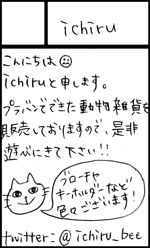 ichiru
こんにちは☺
ichiruと申します。
プラバンでできた動物雑貨を
販売しておりますので、是非
遊びにきて下さい!!
ブローチや
キーホルダーなど
色々ございます!
twitter:@ichiru_bee